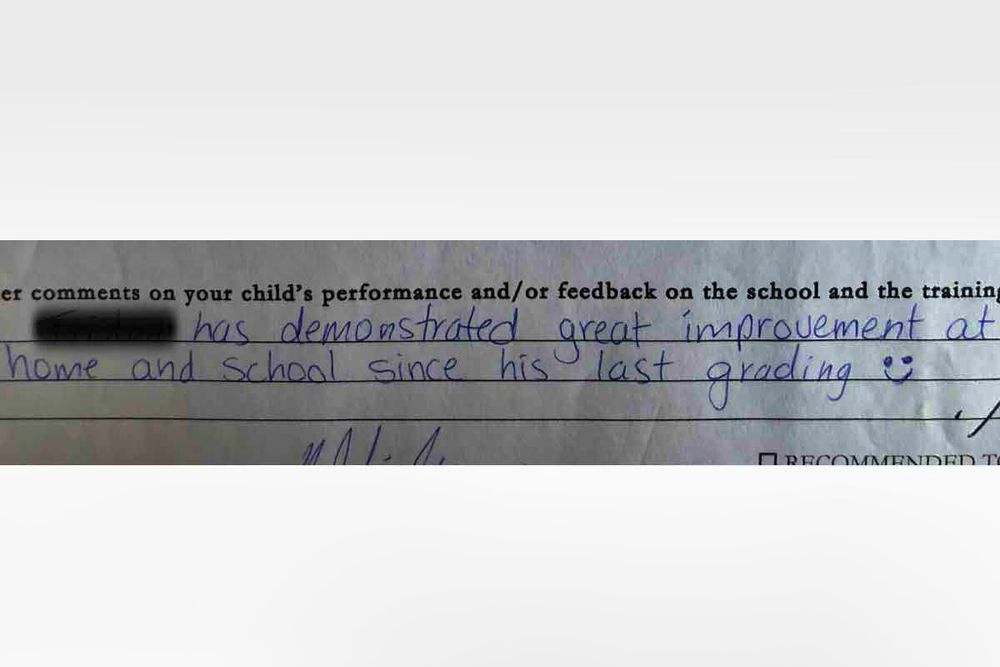 er comments on your child's performance and/or feedback on the school and the training
has demonstrated great improvement at
home and school since his last grading
RECOMMENDED TO